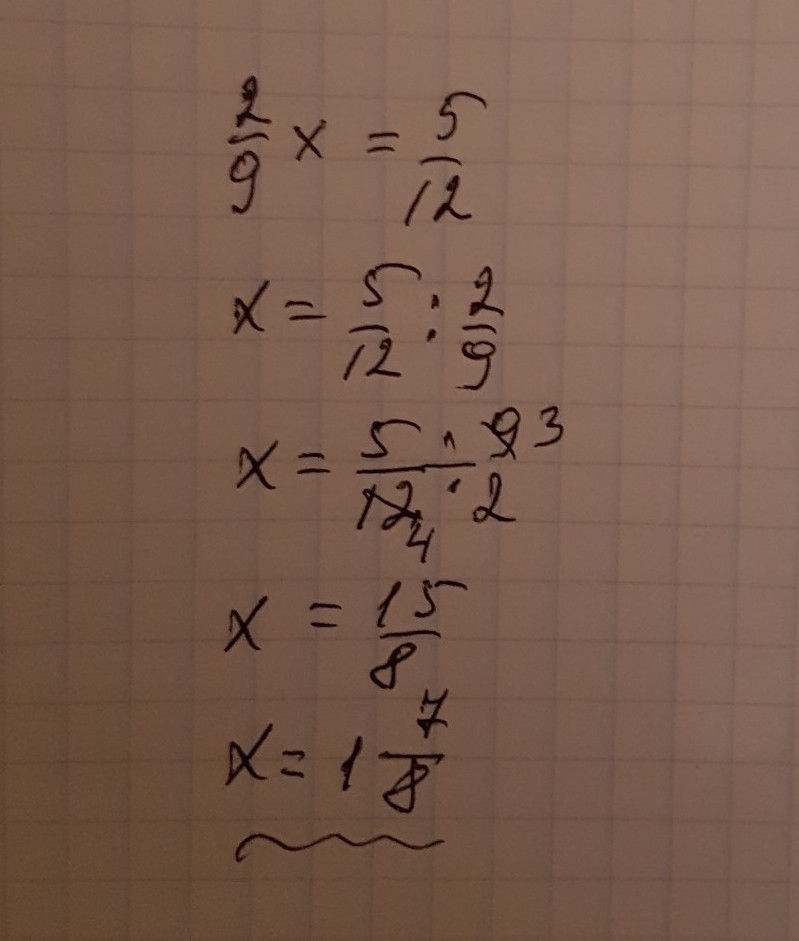 2/9 x = 5/12
x = 5/12 : 2/9
x = (5 · 9 3)/(12 4 · 2)
x = 15/8
x = 1 7/8